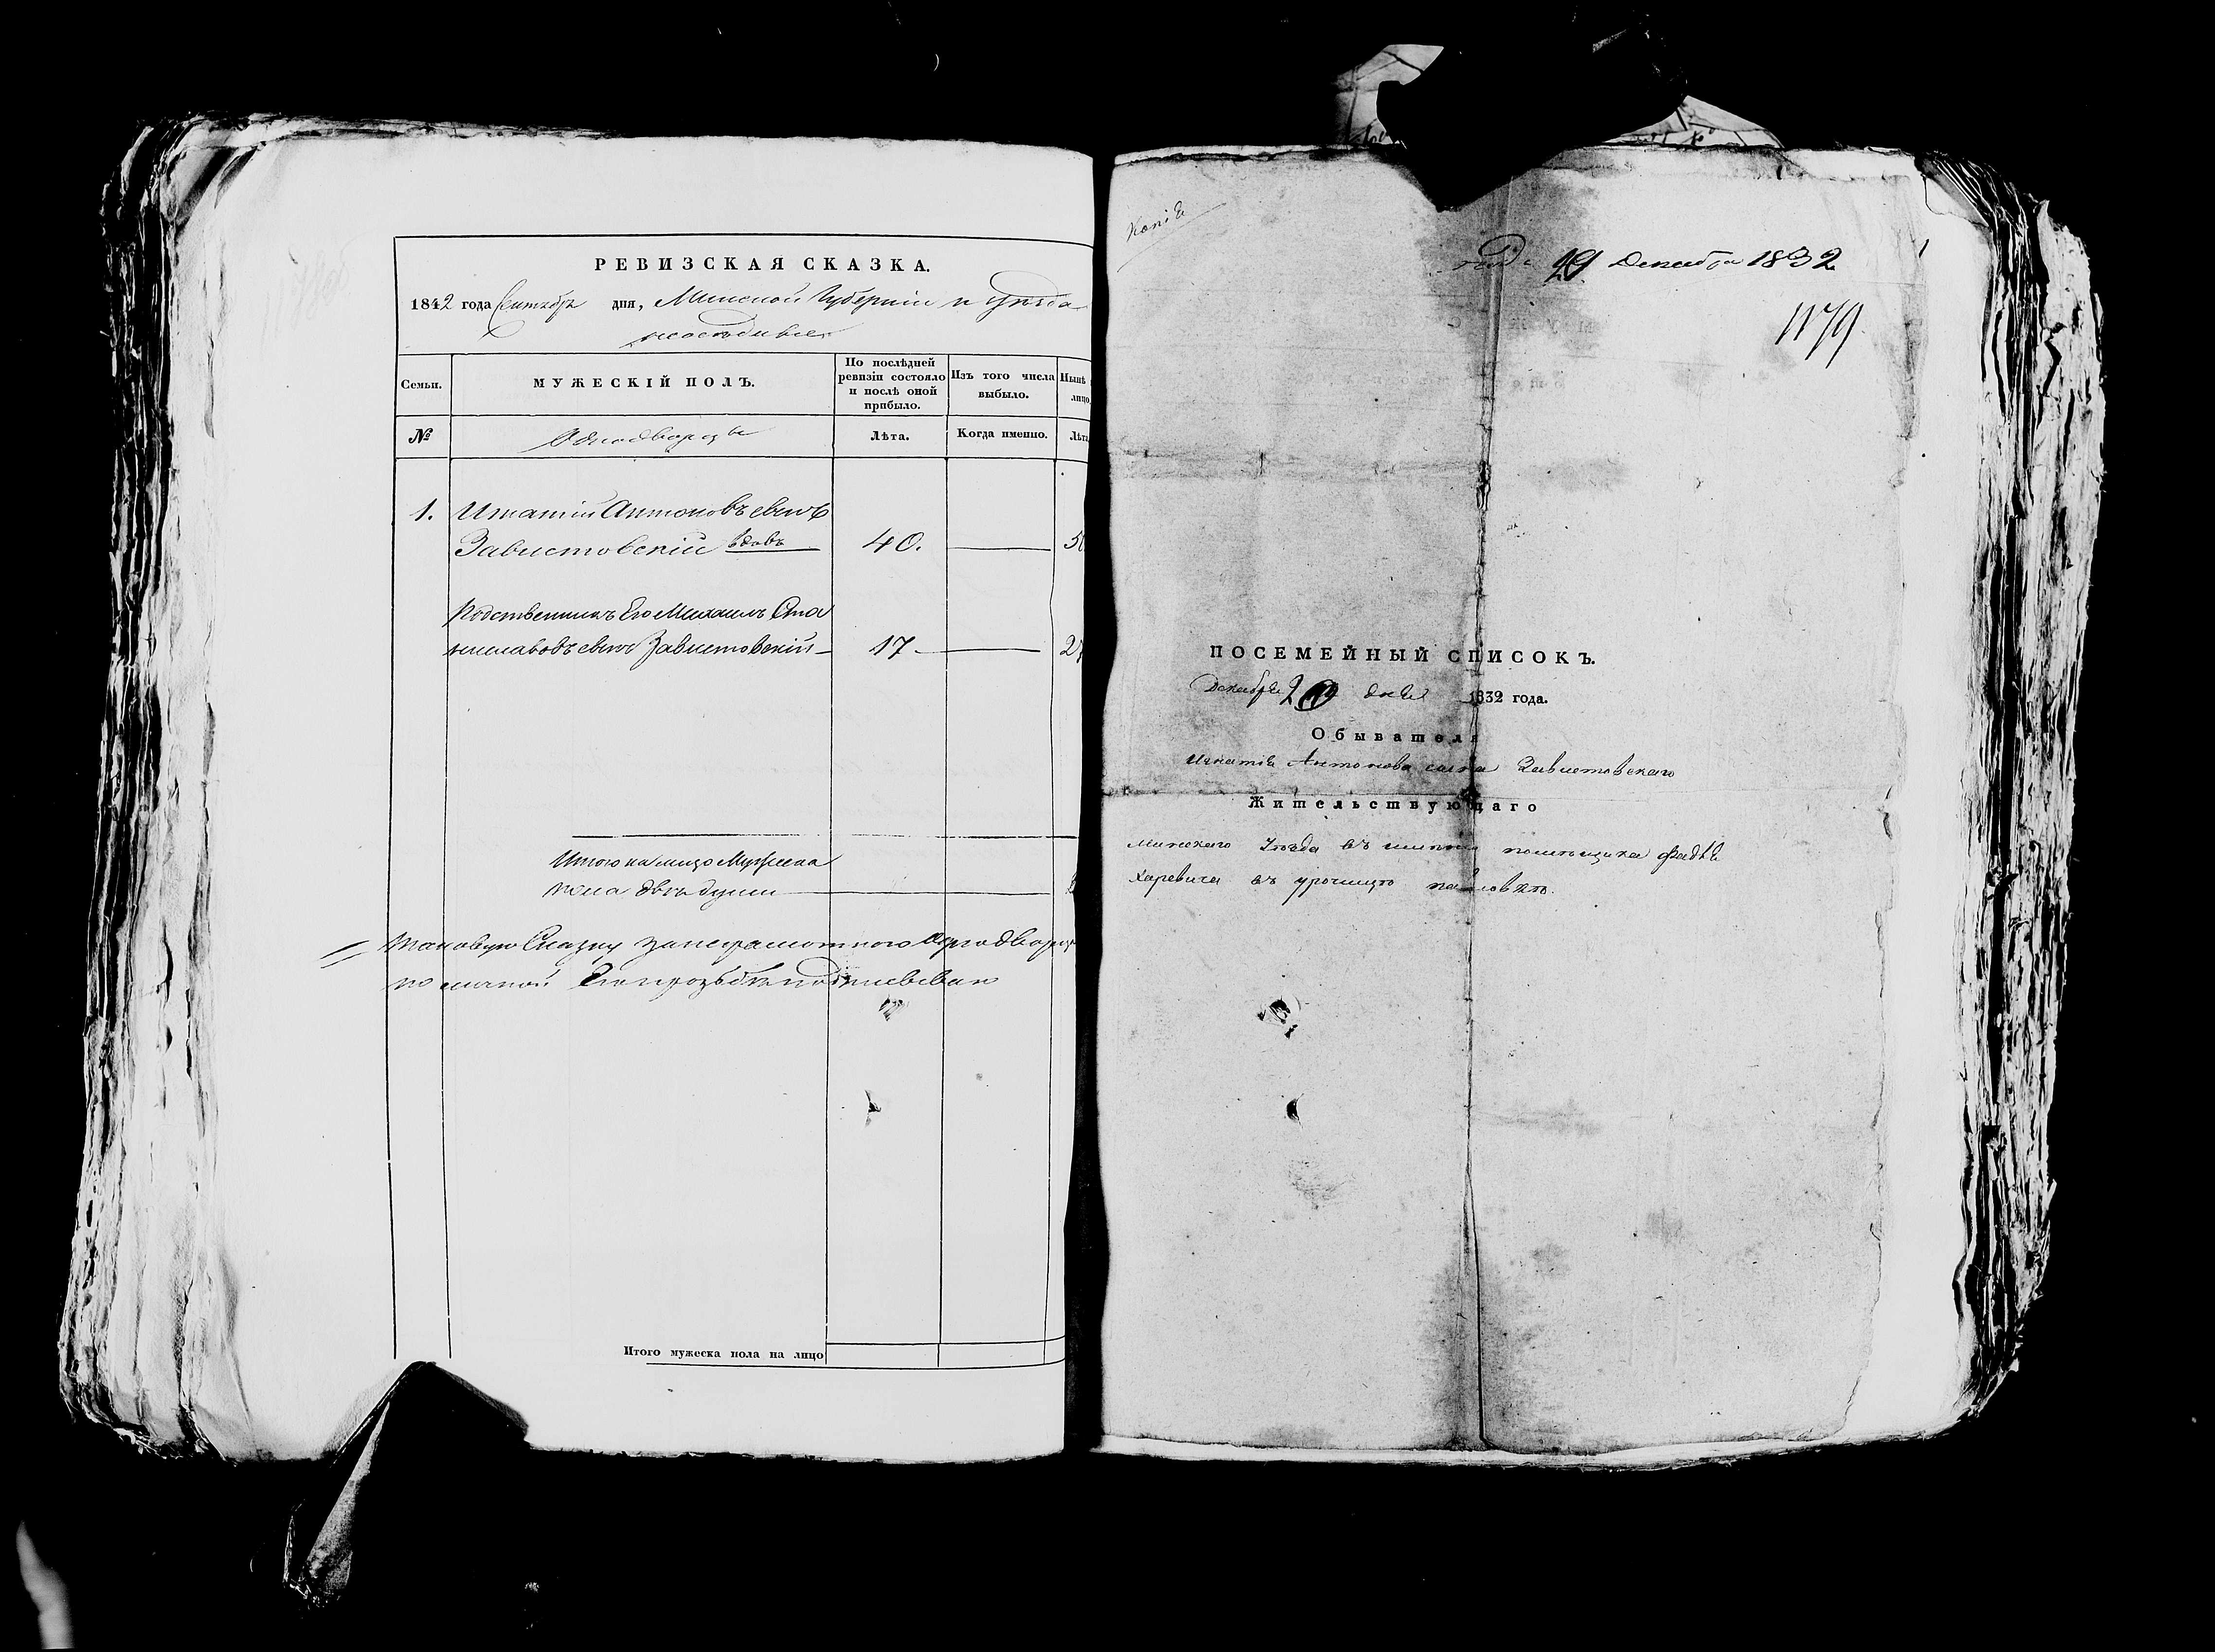 РЕВИЗСКАЯ СКАЗКА.
1842 года Сентября дня, Минской Губерніи и уѣзда
Семьи.
МУЖЕСКІЙ ПОЛЪ.
По послѣдней ревизіи состояло и послѣ оной прибыло.
Изъ того числа выбыло.
Нынѣ
лицо
№
Однодворцы
Лѣта.
Когда именно.
Лѣта
1. Игнатій Антоновъ сынъ
Завистовскій вдовъ 40.
Родственникъ Его Михаилъ Ста
ниславовъ сынъ Завистовскій 17
Итого на лицо Мужеска
пола двѣ души
Таковую Сказку за неграмотного однодворца
по личной Его прозьбѣ
Итого мужеска пола на лицо
Копія
29 Декабря 1832
1179
ПОСЕМЕЙНЫЙ СПИСОКЪ.
Декабря дня 1832 года.
Обывателя
Игнатія Антонова сына Завистовскаго
Жительствующаго
Минскаго Уѣзда въ имѣніи помѣщика Фадѣя
Каревича въ урочищѣ